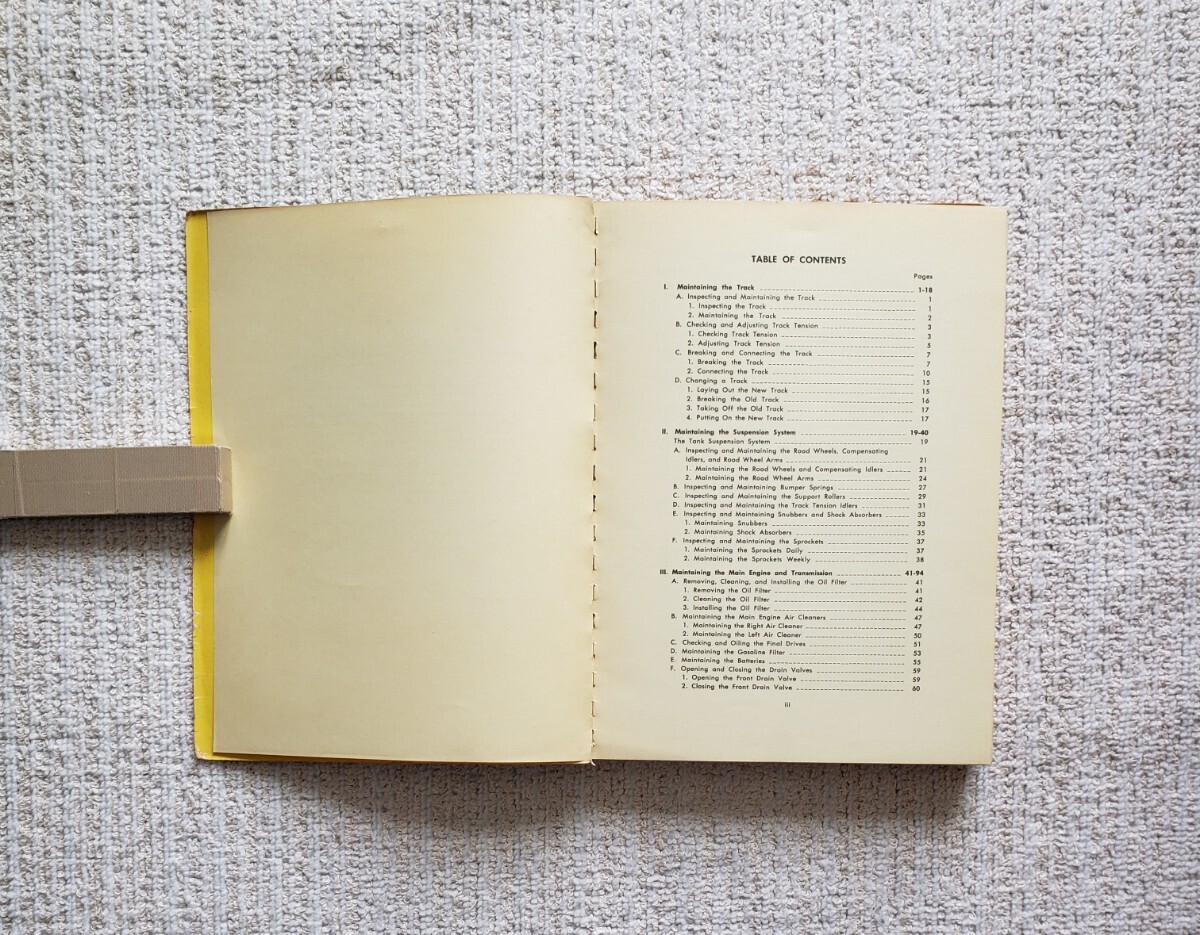 TABLE OF CONTENTS
Pages
I. Maintaining the Track 1-18
A. Inspecting and Maintaining the Track 1
1. Inspecting the Track 1
2. Maintaining the Track 2
B. Checking and Adjusting Track Tension 3
1. Checking Track Tension 3
2. Adjusting Track Tension 5
C. Breaking and Connecting the Track 7
1. Breaking the Track 7
2. Connecting the Track 10
D. Changing a Track 15
1. Laying Out the New Track 15
2. Breaking the Old Track 16
3. Taking Off the Old Track 17
4. Putting On the New Track 17
II. Maintaining the Suspension System 19-40
The Tank Suspension System 19
A. Inspecting and Maintaining the Road Wheels, Compensating
Idlers, and Road Wheel Arms 21
1. Maintaining the Road Wheels and Compensating Idlers 21
2. Maintaining the Road Wheel Arms 24
B. Inspecting and Maintaining Bumper Springs 27
C. Inspecting and Maintaining the Support Rollers 29
D. Inspecting and Maintaining the Track Tension Idlers 31
E. Inspecting and Maintaining Snubbers and Shock Absorbers 33
1. Maintaining Snubbers 33
2. Maintaining Shock Absorbers 35
F. Inspecting and Maintaining the Sprockets 37
1. Maintaining the Sprockets Daily 37
2. Maintaining the Sprockets Weekly 38
III. Maintaining the Main Engine and Transmission 41-94
A. Removing, Cleaning, and Installing the Oil Filter 41
1. Removing the Oil Filter 41
2. Cleaning the Oil Filter 42
3. Installing the Oil Filter 44
B. Maintaining the Main Engine Air Cleaners 47
1. Maintaining the Right Air Cleaner 47
2. Maintaining the Left Air Cleaner 50
C. Checking and Oiling the Final Drives 51
D. Maintaining the Gasoline Filter 53
E. Maintaining the Batteries 55
F. Opening and Closing the Drain Valves 59
1. Opening the Front Drain Valve 59
2. Closing the Front Drain Valve 60
iii